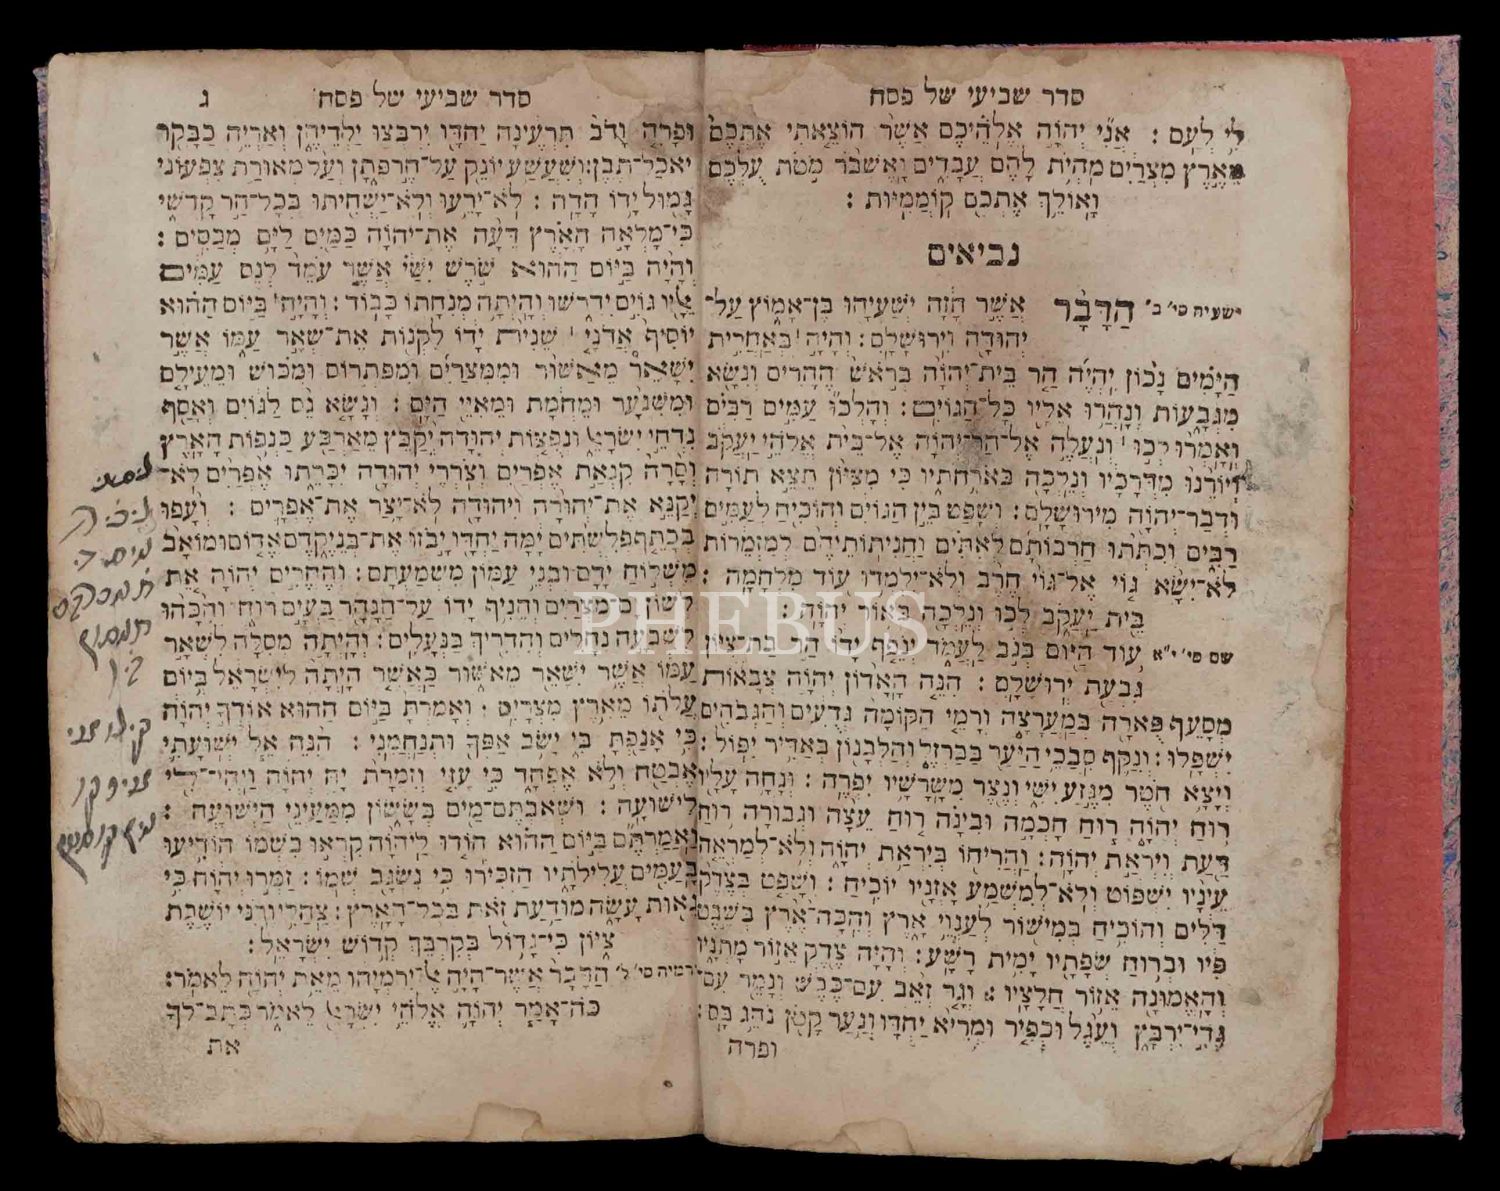 סדר שביעי של פסח
לִי לְעָם : אֲנִי יְהוָה אֱלֹהֵיכֶם אֲשֶׁר הוֹצֵאתִי אֶתְכֶם
מֵאֶרֶץ מִצְרַיִם מִהְיֹת לָהֶם עֲבָדִים וָאֶשְׁבֹּר מֹטֹת עֻלְּכֶם
וָאוֹלֵךְ אֶתְכֶם קוֹמֲמִיּוּת :
נביאים
ישעיה סי׳ ב׳ הַדָּבָר אֲשֶׁר חָזָה יְשַׁעְיָהוּ בֶּן־אָמוֹץ עַל־
יְהוּדָה וִירוּשָׁלִָם : וְהָיָה ׀ בְּאַחֲרִית
הַיָּמִים נָכוֹן יִהְיֶה הַר בֵּית־יְהוָה בְּרֹאשׁ הֶהָרִים וְנִשָּׂא
מִגְּבָעוֹת וְנָהֲרוּ אֵלָיו כָּל־הַגּוֹיִם : וְהָלְכוּ עַמִּים רַבִּים
וְאָמְרוּ לְכוּ ׀ וְנַעֲלֶה אֶל־הַר־יְהוָה אֶל־בֵּית אֱלֹהֵי יַעֲקֹב
וְיוֹרֵנוּ מִדְּרָכָיו וְנֵלְכָה בְּאֹרְחֹתָיו כִּי מִצִּיּוֹן תֵּצֵא תוֹרָה
וּדְבַר־יְהוָה מִירוּשָׁלִָם : וְשָׁפַט בֵּין הַגּוֹיִם וְהוֹכִיחַ לְעַמִּים
רַבִּים וְכִתְּתוּ חַרְבוֹתָם לְאִתִּים וַחֲנִיתוֹתֵיהֶם לְמַזְמֵרוֹת
לֹא־יִשָּׂא גוֹי אֶל־גּוֹי חֶרֶב וְלֹא־יִלְמְדוּ עוֹד מִלְחָמָה :
בֵּית יַעֲקֹב לְכוּ וְנֵלְכָה בְּאוֹר יְהוָה :
שם סי׳ י״א עוֹד הַיּוֹם בְּנֹב לַעֲמֹד יְנֹפֵף יָדוֹ הַר בַּת־צִיּוֹן
גִּבְעַת יְרוּשָׁלִָם : הִנֵּה הָאָדוֹן יְהוָה צְבָאוֹת
מְסָעֵף פֻּארָה בְּמַעֲרָצָה וְרָמֵי הַקּוֹמָה גְּדֻעִים וְהַגְּבֹהִים
יִשְׁפָּלוּ : וְנִקַּף סִבְכֵי הַיַּעַר בַּבַּרְזֶל וְהַלְּבָנוֹן בְּאַדִּיר יִפּוֹל :
וְיָצָא חֹטֶר מִגֵּזַע יִשָׁי וְנֵצֶר מִשָּׁרָשָׁיו יִפְרֶה : וְנָחָה עָלָיו
רוּחַ יְהוָה רוּחַ חָכְמָה וּבִינָה רוּחַ עֵצָה וּגְבוּרָה רוּחַ
דַּעַת וְיִרְאַת יְהוָה : וַהֲרִיחוֹ בְּיִרְאַת יְהוָה וְלֹא־לְמַרְאֵה
עֵינָיו יִשְׁפּוֹט וְלֹא־לְמִשְׁמַע אָזְנָיו יוֹכִיחַ : וְשָׁפַט בְּצֶדֶק
דַּלִּים וְהוֹכִיחַ בְּמִישׁוֹר לְעַנְוֵי אָרֶץ וְהִכָּה־אֶרֶץ בְּשֵׁבֶט
פִּיו וּבְרוּחַ שְׂפָתָיו יָמִית רָשָׁע : וְהָיָה צֶדֶק אֵזוֹר מָתְנָיו
וְהָאֱמוּנָה אֵזוֹר חֲלָצָיו : וְגָר זְאֵב עִם־כֶּבֶשׂ וְנָמֵר עִם־
גְּדִי־יִרְבָּץ וְעֵגֶל וּכְפִיר וּמְרִיא יַחְדָּו וְנַעַר קָטֹן נֹהֵג בָּם :
ופרה
סדר שביעי של פסח ג
וּפָרָה וָדֹב תִּרְעֶינָה יַחְדָּו יִרְבְּצוּ יַלְדֵיהֶן וְאַרְיֵה כַּבָּקָר
יֹאכַל־תֶּבֶן : וְשִׁעֲשַׁע יוֹנֵק עַל־חֻר פָּתֶן וְעַל מְאוּרַת צִפְעוֹנִי
גָּמוּל יָדוֹ הָדָה : לֹא־יָרֵעוּ וְלֹא־יַשְׁחִיתוּ בְּכָל־הַר קָדְשִׁי
כִּי־מָלְאָה הָאָרֶץ דֵּעָה אֶת־יְהוָה כַּמַּיִם לַיָּם מְכַסִּים :
וְהָיָה בַּיּוֹם הַהוּא שֹׁרֶשׁ יִשַׁי אֲשֶׁר עֹמֵד לְנֵס עַמִּים
אֵלָיו גּוֹיִם יִדְרֹשׁוּ וְהָיְתָה מְנֻחָתוֹ כָּבוֹד : וְהָיָה ׀ בַּיּוֹם הַהוּא
יוֹסִיף אֲדֹנָי ׀ שֵׁנִית יָדוֹ לִקְנוֹת אֶת־שְׁאָר עַמּוֹ אֲשֶׁר
יִשָּׁאֵר מֵאַשּׁוּר וּמִמִּצְרַיִם וּמִפַּתְרוֹס וּמִכּוּשׁ וּמֵעֵילָם
וּמִשִּׁנְעָר וּמֵחֲמָת וּמֵאִיֵּי הַיָּם : וְנָשָׂא נֵס לַגּוֹיִם וְאָסַף
נִדְחֵי יִשְׂרָאֵל וּנְפֻצוֹת יְהוּדָה יְקַבֵּץ מֵאַרְבַּע כַּנְפוֹת הָאָרֶץ
וְסָרָה קִנְאַת אֶפְרַיִם וְצֹרְרֵי יְהוּדָה יִכָּרֵתוּ אֶפְרַיִם לֹא־
יְקַנֵּא אֶת־יְהוּדָה וִיהוּדָה לֹא־יָצֹר אֶת־אֶפְרָיִם : וְעָפוּ
בְכָתֵף פְּלִשְׁתִּים יָמָּה יַחְדָּו יָבֹזּוּ אֶת־בְּנֵי־קֶדֶם אֱדוֹם וּמוֹאָב
מִשְׁלוֹחַ יָדָם וּבְנֵי עַמּוֹן מִשְׁמַעְתָּם : וְהֶחֱרִים יְהוָה אֵת
לְשׁוֹן יָם־מִצְרַיִם וְהֵנִיף יָדוֹ עַל־הַנָּהָר בַּעְיָם רוּחוֹ וְהִכָּהוּ
לְשִׁבְעָה נְחָלִים וְהִדְרִיךְ בַּנְּעָלִים : וְהָיְתָה מְסִלָּה לִשְׁאָר
עַמּוֹ אֲשֶׁר יִשָּׁאֵר מֵאַשּׁוּר כַּאֲשֶׁר הָיְתָה לְיִשְׂרָאֵל בְּיוֹם
עֲלֹתוֹ מֵאֶרֶץ מִצְרָיִם : וְאָמַרְתָּ בַּיּוֹם הַהוּא אוֹדְךָ יְהוָה
כִּי אָנַפְתָּ בִּי יָשֹׁב אַפְּךָ וּתְנַחֲמֵנִי : הִנֵּה אֵל יְשׁוּעָתִי
אֶבְטַח וְלֹא אֶפְחָד כִּי עָזִּי וְזִמְרָת יָהּ יְהוָה וַיְהִי־לִי
לִישׁוּעָה : וּשְׁאַבְתֶּם־מַיִם בְּשָׂשׂוֹן מִמַּעַיְנֵי הַיְשׁוּעָה :
וַאֲמַרְתֶּם בַּיּוֹם הַהוּא הוֹדוּ לַיהוָה קִרְאוּ בִשְׁמוֹ הוֹדִיעוּ
בָעַמִּים עֲלִילֹתָיו הַזְכִּירוּ כִּי נִשְׂגָּב שְׁמוֹ : זַמְּרוּ יְהוָה כִּי
גֵאוּת עָשָׂה מוּדַעַת זֹאת בְּכָל־הָאָרֶץ : צַהֲלִי וָרֹנִּי יוֹשֶׁבֶת
צִיּוֹן כִּי־גָדוֹל בְּקִרְבֵּךְ קְדוֹשׁ יִשְׂרָאֵל :
ירמיה סי׳ ל׳ הַדָּבָר אֲשֶׁר־הָיָה אֶל־יִרְמְיָהוּ מֵאֵת יְהוָה לֵאמֹר :
כֹּה־אָמַר יְהוָה אֱלֹהֵי יִשְׂרָאֵל לֵאמֹר כְּתָב־לְךָ
את
PHEBUS